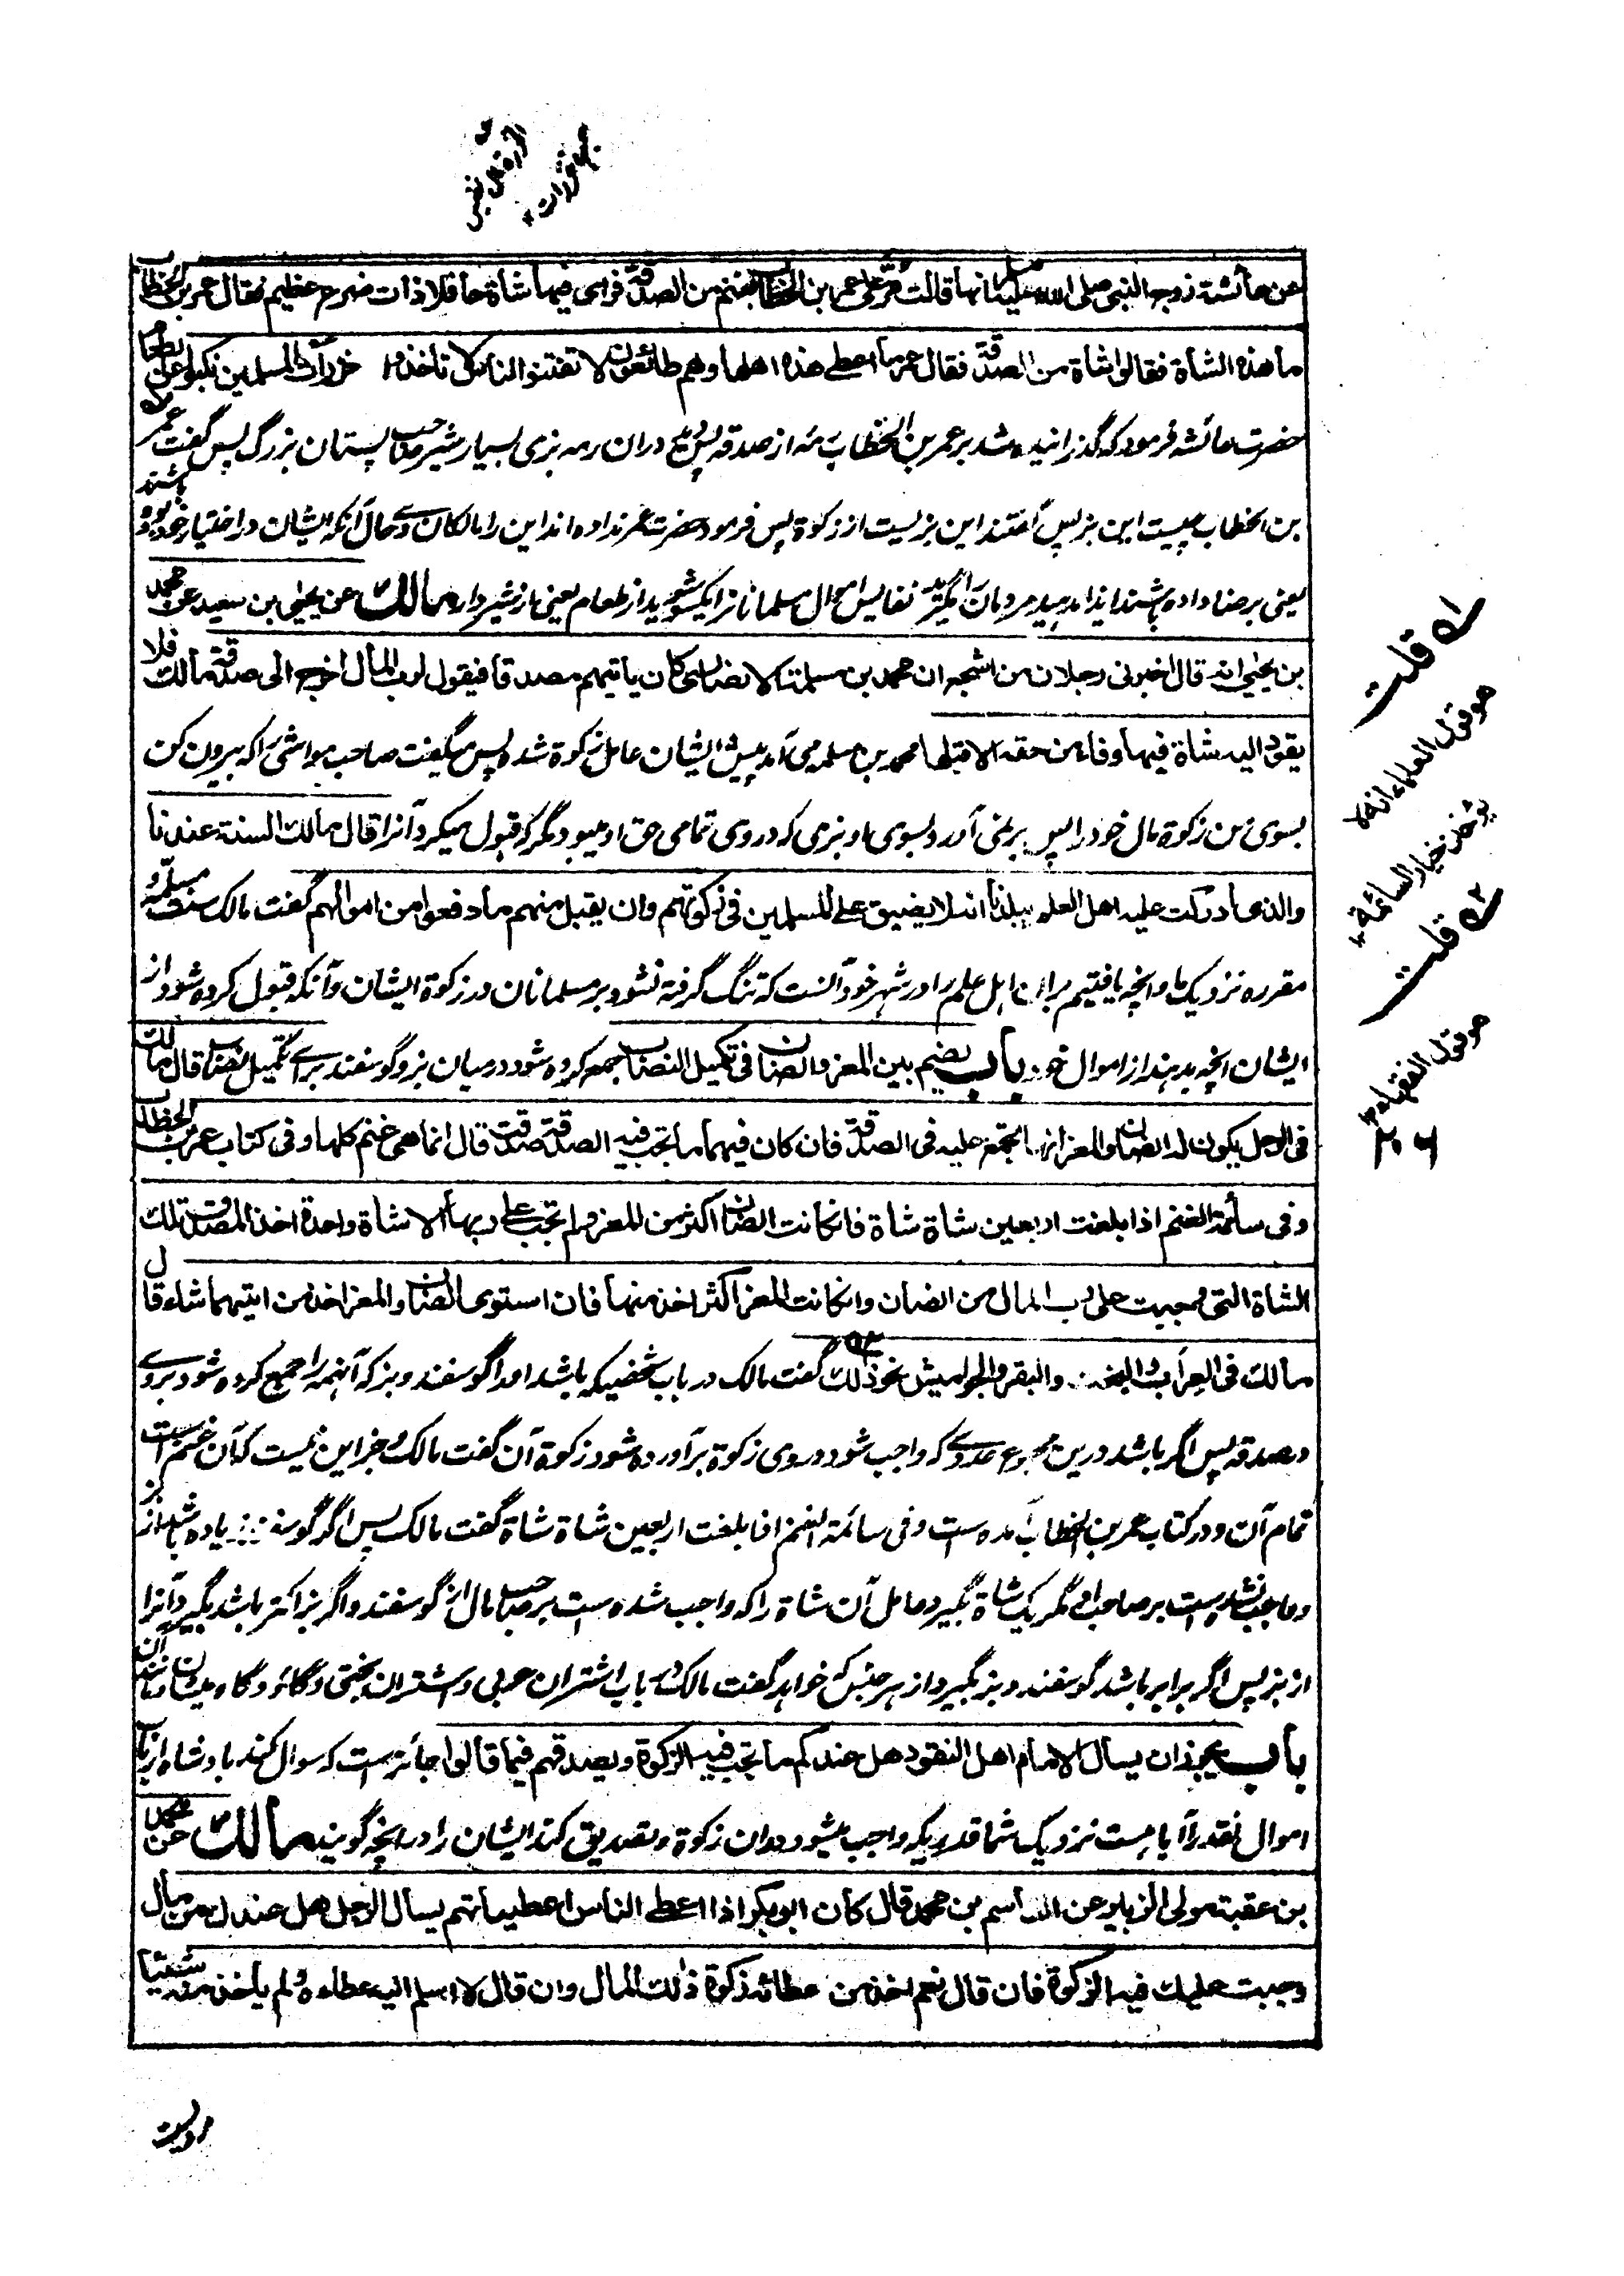 عن عائشة زوج النبي صلى الله عليه وسلم انها قالت مر على عمر بن الخطاب بغنم من الصدقة فراى فيها شاة حافلا ذات ضرع عظيم فقال عمر بن الخطاب
ما هذه الشاة فقالوا شاة من الصدقة فقال عمر ما اعطى هذه اهلها وهم طائعون لا تفتنوا الناس لا تأخذوا حزرات المسلمين نكبوا عن الطعام
حضرت عائشه فرمود که گذرانیده شد بر عمر بن الخطاب رمه از صدقه پس دید دران رمه بزی بسیار شیر صاحب پستان بزرگ پس گفت عمر
بن الخطاب چیست این بز پس گفتند این بزیست از زکوة پس فرمود حضرت عمر نداده اند این را مالکان وے حال آنکه ایشان در اختیار خود بوده باشند
یعنی برضا داده باشند ایذا مدهید مردمان را مگیرید نفایس اموال مسلمانان را یکسو شوید از طعام یعنی از شیردار مالك عن يحيى بن سعيد عن محمد
بن يحيى انه قال اخبرنى رجلان من اشجع ان محمد بن مسلمة الانصارى كان ياتيهم مصدقا فيقول لرب المال اخرج الى صدقة مالك فلا
يقود اليه شاة فيها وفاء من حقه الا قبلها محمد بن مسلمه می آمد پیش ایشان عامل زکوة شده پس میگفت صاحب مواشی را که بیرون کن
بسوی من زکوة مال خود را پس برنمی آورد بسوی او بزی که در وی تمامی حق او میبود مگر که قبول میکرد آنرا قال مالك السنة عندنا
والذى ادركت عليه اهل العلم ببلدنا انه لا يضيق على المسلمين فى زكوتهم وان يقبل منهم ما دفعوا من اموالهم گفت مالک سنت مسلمه و
مقرره نزدیک ما و انچه یافتیم بران اهل علم را در شهر خود آنست که تنگ گرفته نشود بر مسلمانان در زکوة ایشان و آنکه قبول کرده شود از
ایشان انچه بدهند از اموال خود باب يضم بين المعز والضان فى تكميل النصاب جمع کرده شود درمیان بز و گوسفند برای تکمیل نصاب قال مالك
فى الرجل يكون له الضان والمعز انها تجمع عليه فى الصدقة فان كان فيهما ما تجب فيه الصدقة صدقت قال انما هى غنم كلها وفى كتاب عمر بن الخطاب
وفى سائمة الغنم اذا بلغت اربعين شاة شاة فان كانت الضان اكثر من المعز ولم تجب على ربها الا شاة واحدة اخذ المصدق تلك
الشاة التى وجبت على رب المال من الضان وان كانت المعز اكثر اخذ منها فان استوى الضان والمعز اخذ من ايتهما شاء قال
مالك فى العراب والبخت والبقر والجواميس نحو ذلك گفت مالک در باب شخصیکه باشد او را گوسفند و بز که آنهمه را جمع کرده شود بروے
در صدقه پس اگر باشد درین مجموع عددے که واجب شود در وی زکوة برآورده شود زکوة آن گفت مالک و جز این نیست که آن غنم است
تمام آن و در کتاب عمر بن الخطاب آمده ست وفى سائمة الغنم اذا بلغت اربعين شاة شاة گفت مالک پس اگر گوسفند زیاده باشد از بز
و واجب نشده است بر صاحب او مگر یک شاة بگیرد عامل آن شاة را که واجب شده ست بر صاحب مال از گوسفند و اگر بز اکثر باشد بگیرد آنرا
از بز پس اگر برابر باشد گوسفند و بز بگیرد از هر جنس که خواهد گفت مالک در باب اشتران عربی و اشتران بختی و گاو و گاومیشان مانند آن
باب يجوز ان يسأل الامام اهل النقود هل عندكم ما تجب فيه الزكوة ويصدقهم فيما قالوا جائزست که سوال کند بادشاه ارباب
اموال نقد را آیا هست نزدیک شما قدریکه واجب میشود دران زکوة و تصدیق کند ایشان را در انچه گویند مالك عن محمد
بن عقبة مولى الزبير عن القاسم بن محمد قال كان ابو بكر اذا اعطى الناس اعطياتهم يسأل الرجل هل عندك من مال
وجبت عليك فيه الزكوة فان قال نعم اخذ من عطائه زكوة ذلك المال وان قال لا اسلم اليه عطاءه ولم يأخذ منه شيئا
له قلت
هو قول العلماء انه لا
يؤخذ خيار السائمة
له قلت
هو قول الفقهاء